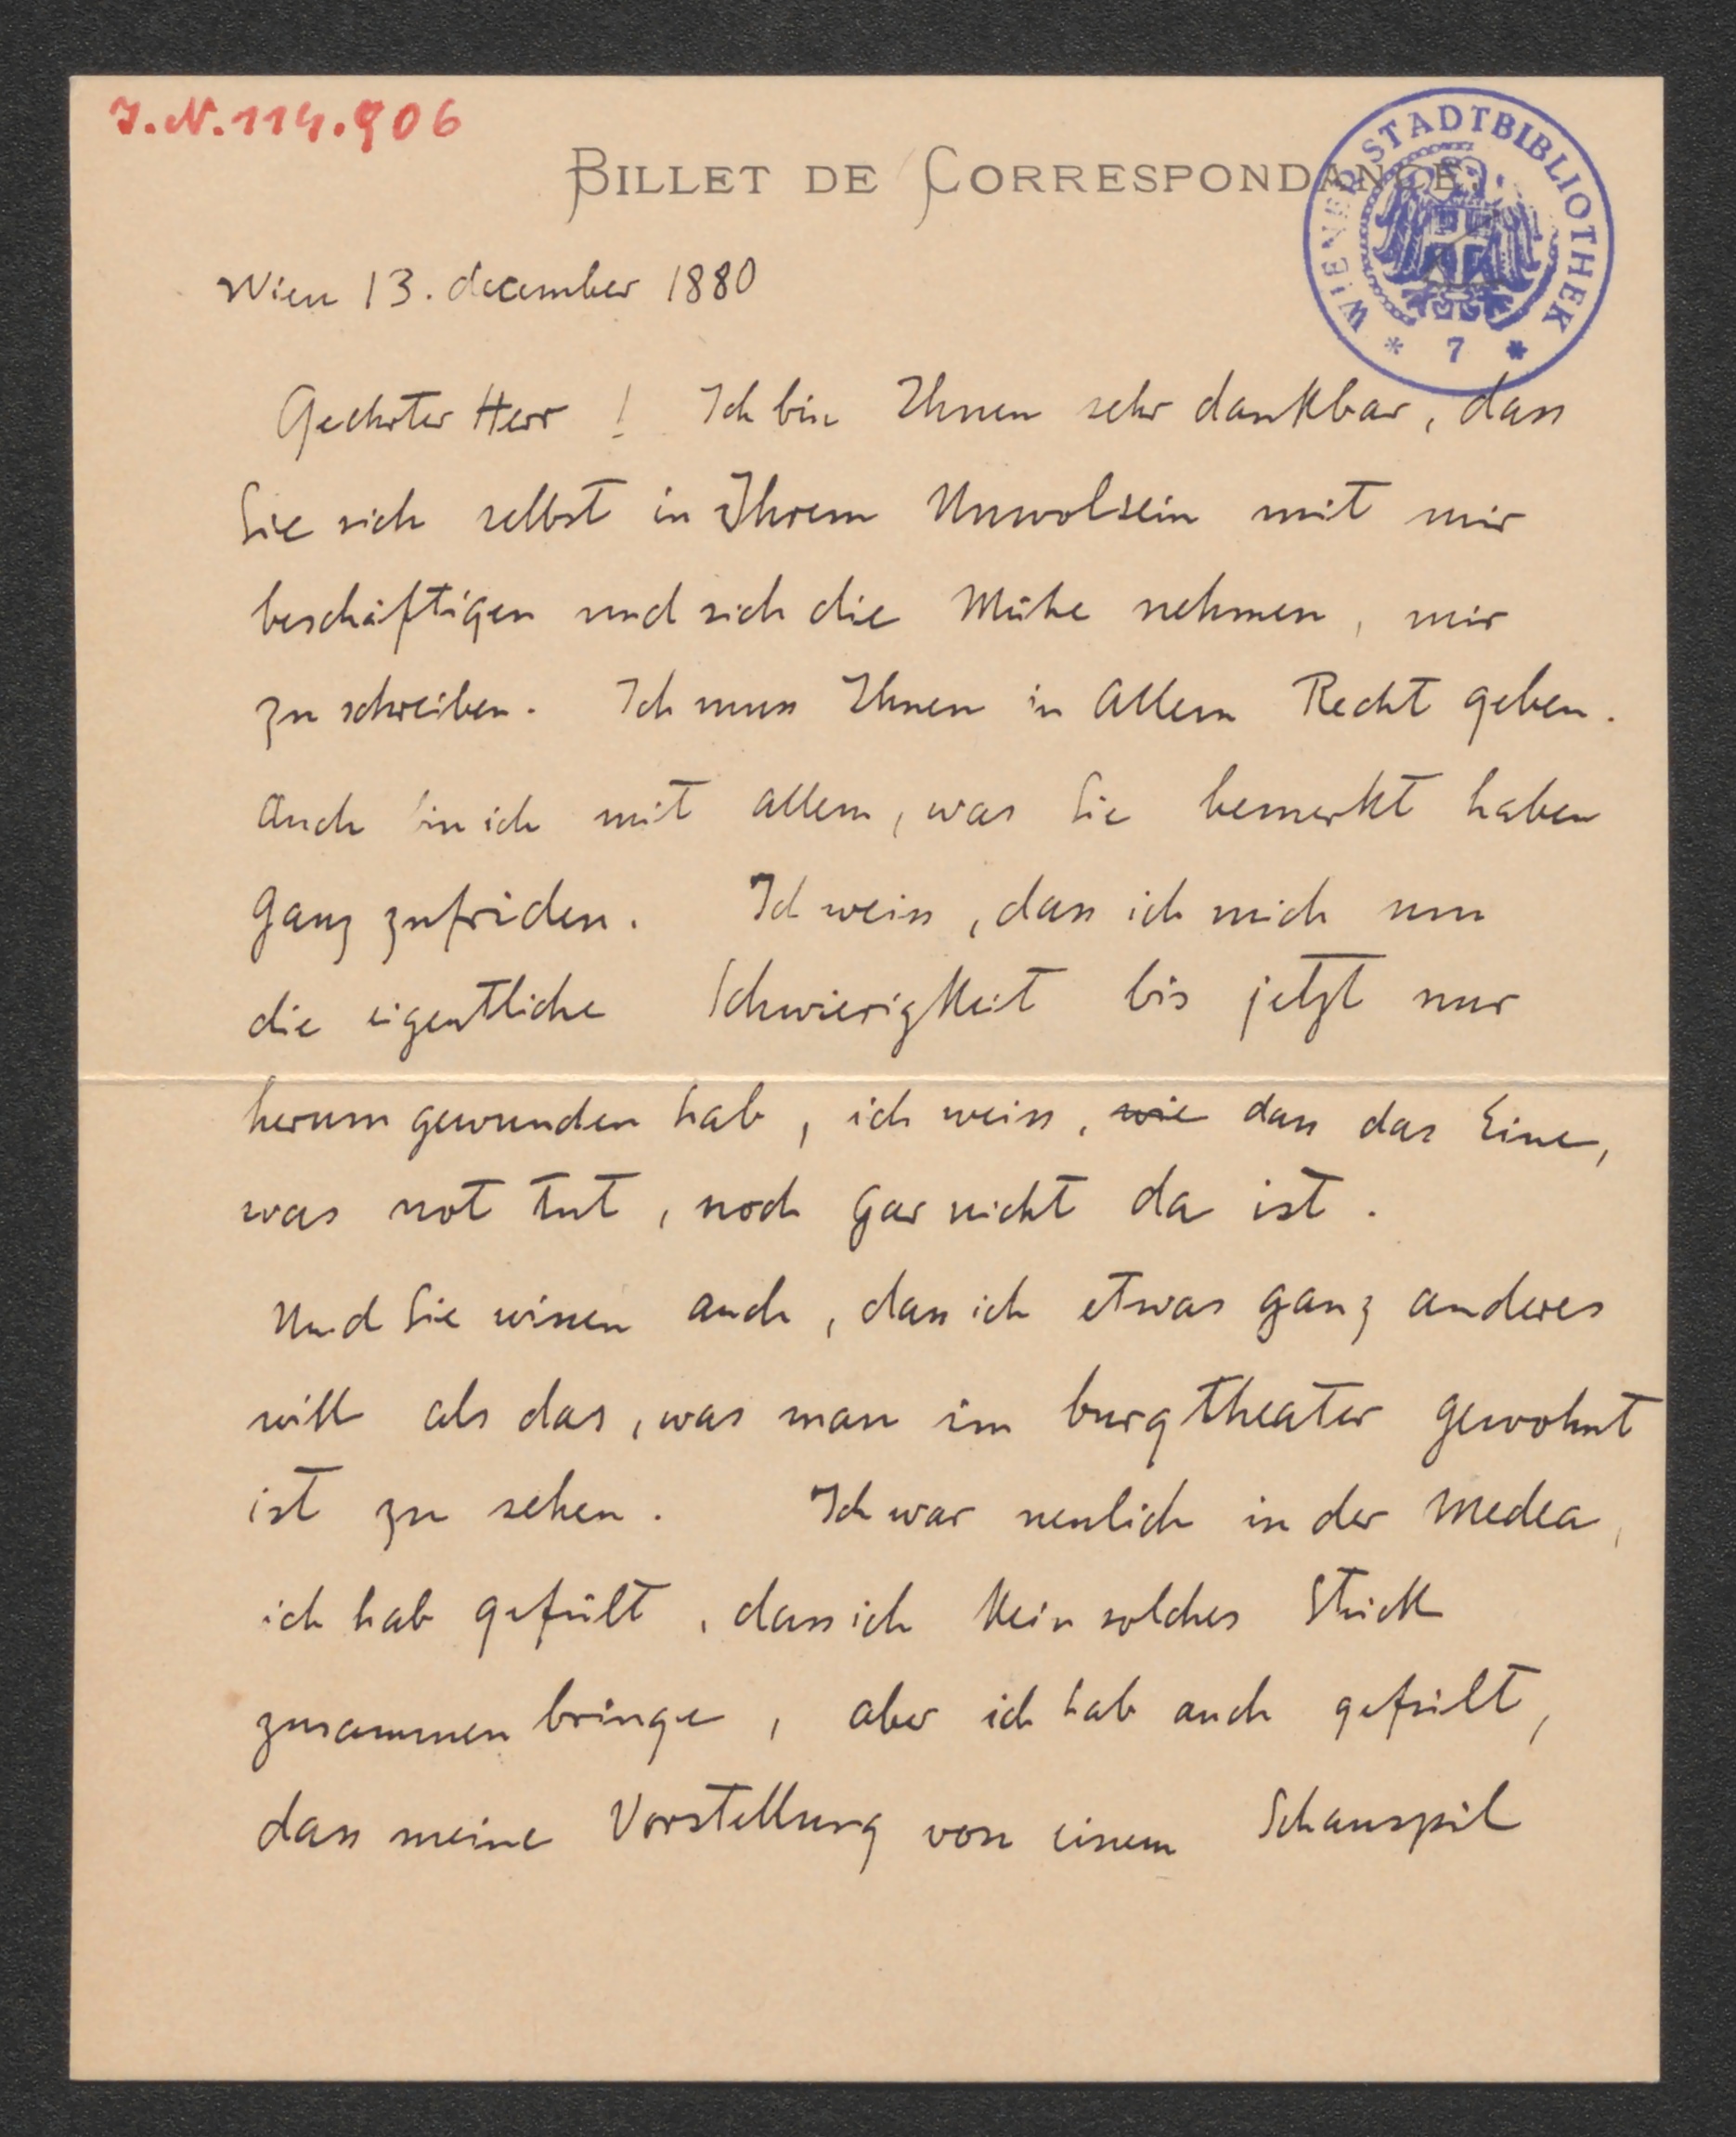 J.N.114.906
BILLET DE CORRESPONDANCE.
WIENER STADTBIBLIOTHEK
* 7 *
Wien 13. december 1880
Geehrter Herr ! Ich bin Ihnen sehr dankbar, dass
Sie sich selbst in Ihrem Unwolsein mit mir
beschäftigen und sich die Mühe nehmen, mir
zu schreiben. Ich muss Ihnen in Allem Recht geben.
Auch bin ich mit allem, was Sie bemerkt haben
ganz zufriden. Ich weiss, dass ich mich um
die eigentliche Schwierigkeit bis jetzt nur
herum gewunden hab, ich weiss, wie dass das Eine,
was not tut, noch gar nicht da ist.
Und Sie wissen auch, dass ich etwas ganz anderes
will als das, was man im burgtheater gewohnt
ist zu sehen. Ich war neulich in der Medea,
ich hab gefült, dass ich kein solches Stück
zusammen bringe, aber ich hab auch gefült,
dass meine Vorstellung von einem Schauspil